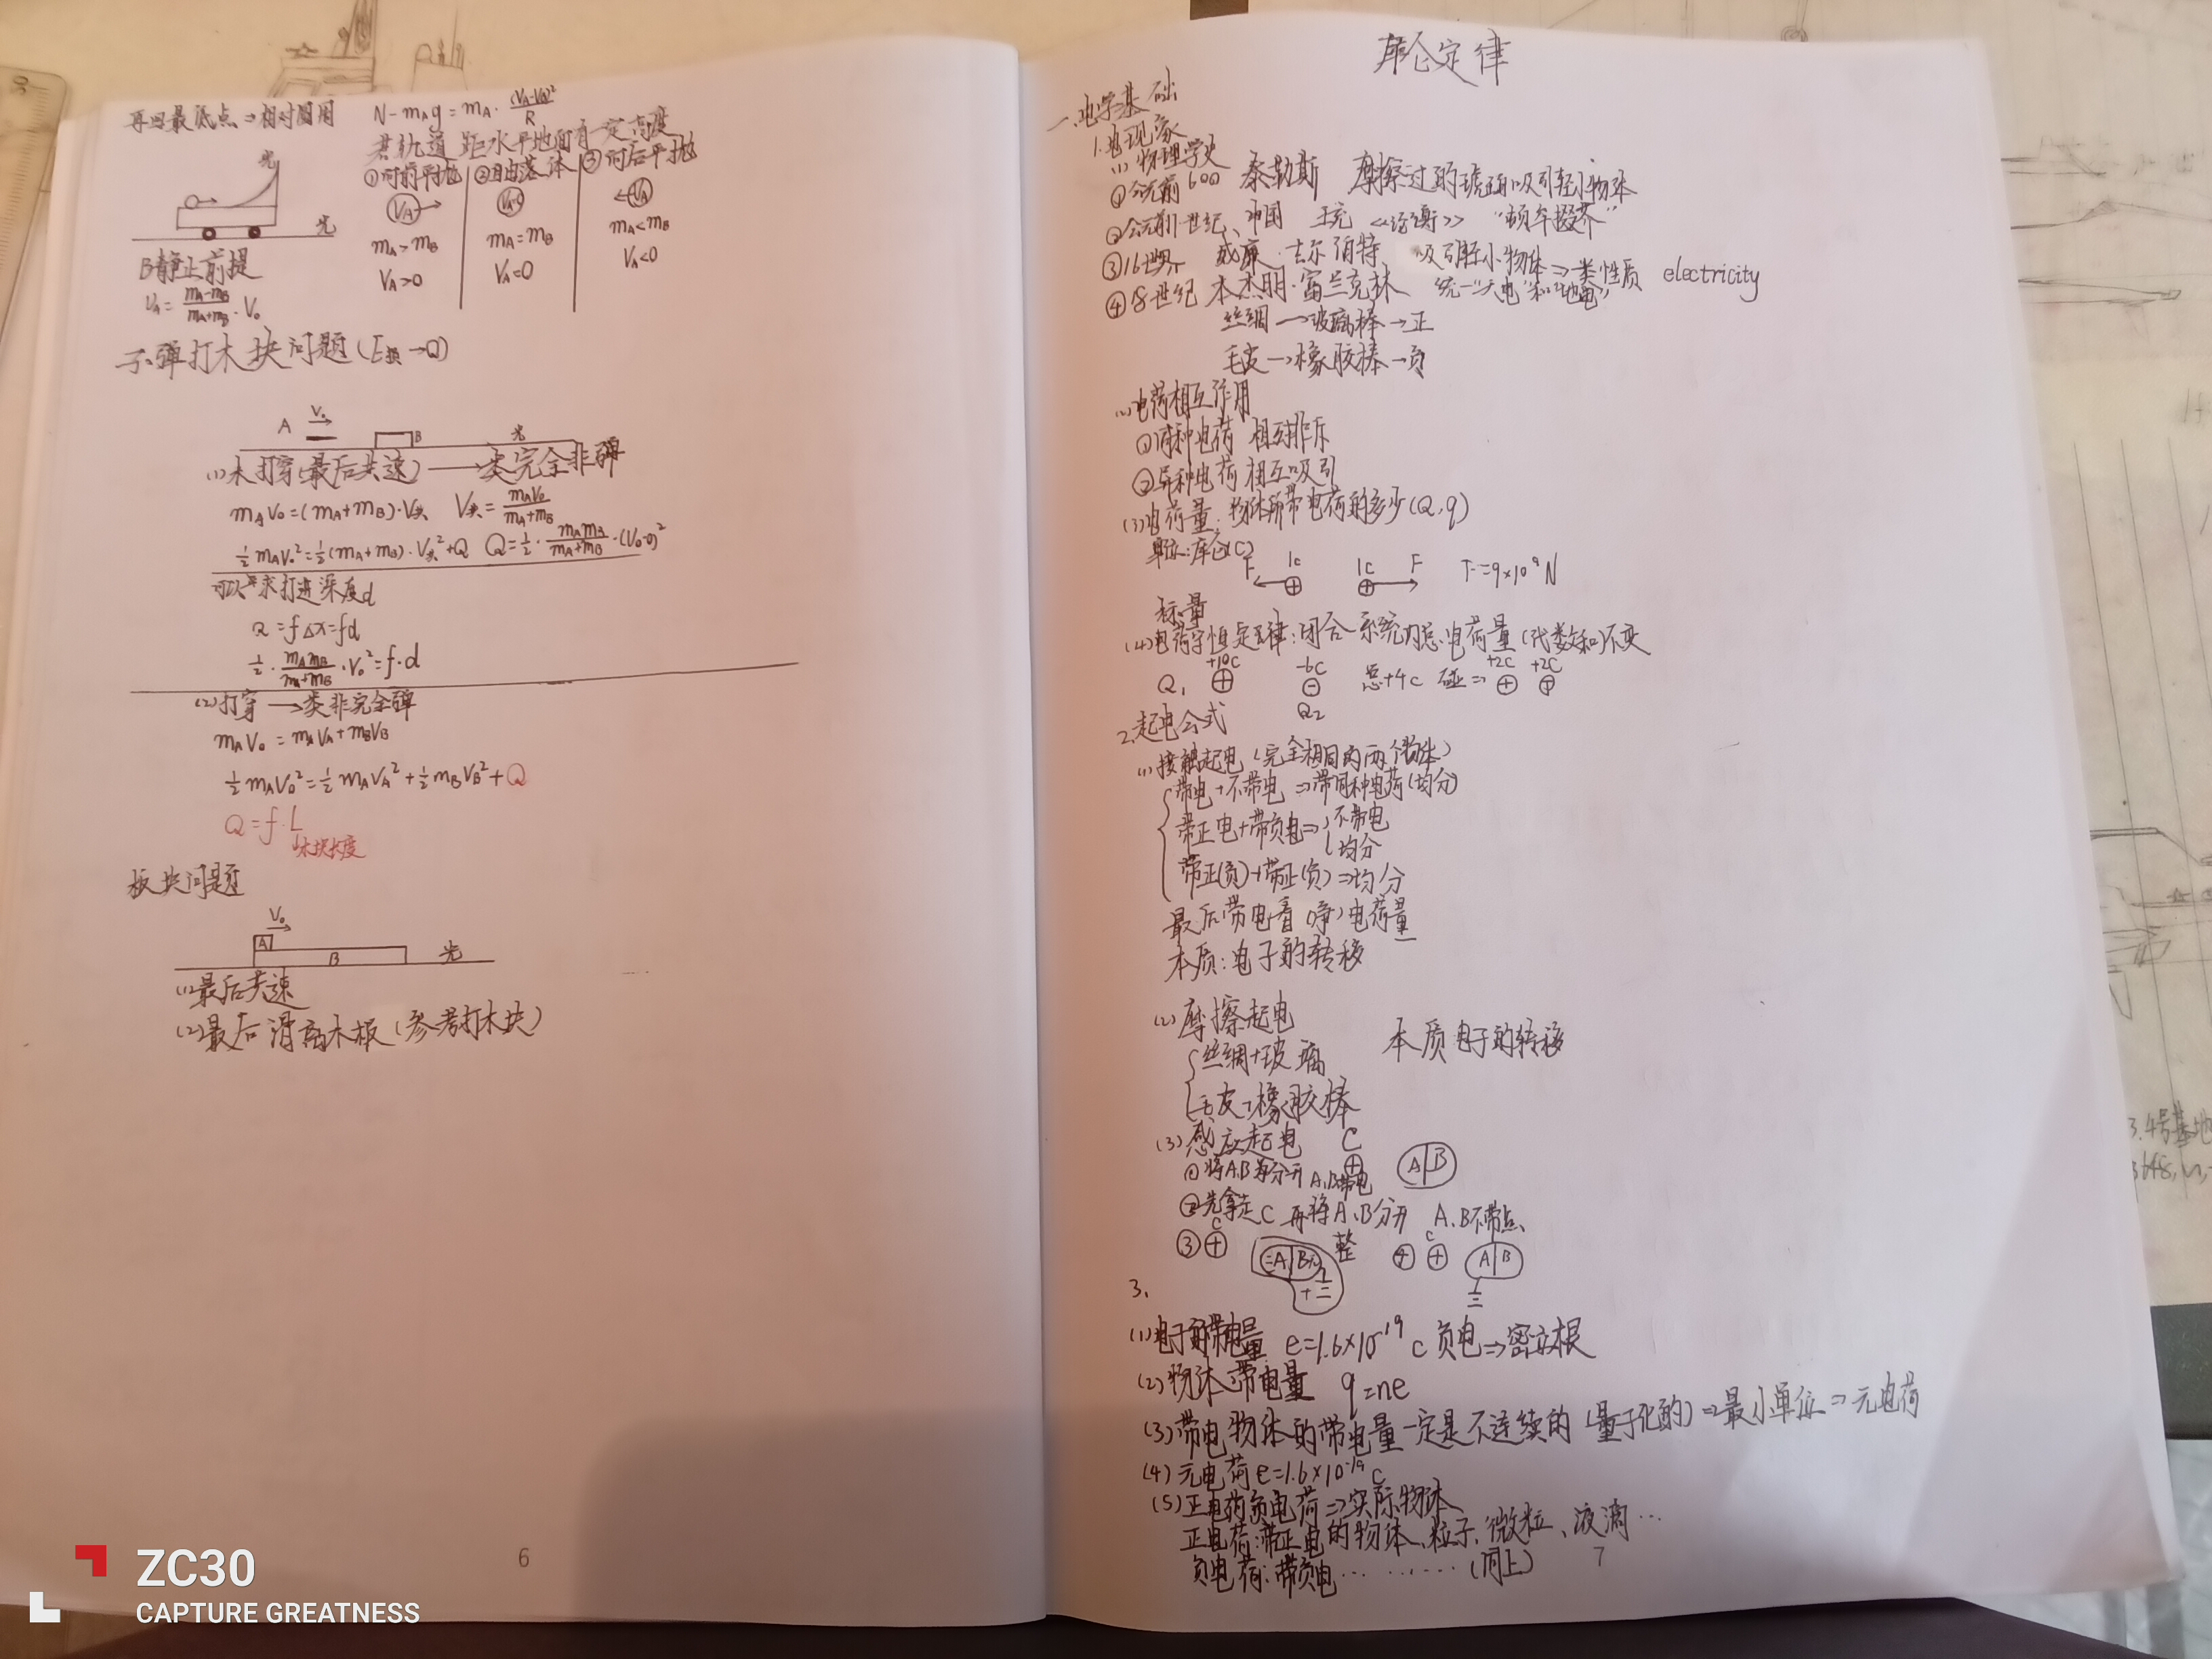 再回最低点⇒相对圆周 N-mAg=mA·(VA-VB)²/R
若轨道距水平地面有一定高度
①向前平抛 ②自由落体 ③向后平抛
光
VA→ VA=0 ←VA
mA>mB mA=mB mA<mB
VA>0 VA=0 VA<0
光
B静止前提
VA=(mA-mB)/(mA+mB)·V₀
子弹打木块问题(E损→Q)
A V₀ B 光
(1)未打穿(最后共速)→类完全非弹
mAV₀=(mA+mB)·V共 V共=mAV₀/(mA+mB)
½mAV₀²=½(mA+mB)·V共²+Q Q=½·mAmB/(mA+mB)·(V₀-0)²
可以求打进深度d
Q=fΔx=fd
½·mAmB/(mA+mB)·V₀²=f·d
(2)打穿→类非完全弹
mAV₀=mAVA+mBVB
½mAV₀²=½mAVA²+½mBVB²+Q
Q=f·L
木块长度
板块问题
V₀
A B 光
(1)最后共速
(2)最后滑离木板(参考打木块)
6
库仑定律
一.电学基础
1.电现象
(1)物理学史
①公元前600 泰勒斯 摩擦过的琥珀吸引轻小物体
②公元前1世纪、中国 王充 《论衡》 “顿牟掇芥”
③16世纪 威廉·吉尔伯特 吸引轻小物体⇒一类性质 electricity
④18世纪 本杰明·富兰克林 统一“天电”和“地电”
丝绸→玻璃棒→正
毛皮→橡胶棒→负
(2)电荷相互作用
①同种电荷 相互排斥
②异种电荷相互吸引
(3)电荷量:物体所带电荷的多少(Q,q)
单位:库仑(C)
F 1C 1C F F=9×10⁹N
标量
(4)电荷守恒定律:闭合系统内总电荷量(代数和)不变
+10C -6C 总+4C 碰⇒ +2C +2C
Q₁ ⊕ ⊖ ⊕ ⊕
Q₂
2.起电公式
(1)接触起电(完全相同的两个物体)
带电+不带电⇒带同种电荷(均分)
带正电+带负电⇒不带电
均分
带正(负)+带正(负)⇒均分
最后带电看(净)电荷量
本质:电子的转移
(2)摩擦起电
丝绸+玻璃 本质电子的转移
毛皮+橡胶棒
(3)感应起电 C
①将A.B分开 A、B带电 ⊕ A|B
②先拿走C再将A、B分开 A、B不带点、
③ C ⊕ A|B 整 ④ C ⊕ A|B
3.
(1)电子所带电量 e=1.6×10⁻¹⁹C 负电⇒密立根
(2)物体带电量 q=ne
(3)带电物体的带电量一定是不连续的(量子化的)⇒最小单位⇒元电荷
(4)元电荷e=1.6×10⁻¹⁹C
(5)正电荷负电荷⇒实际物体
正电荷:带正电的物体、粒子、微粒、液滴…
负电荷:带负电…………(同上)
7
3.4号基地
ZC30
CAPTURE GREATNESS